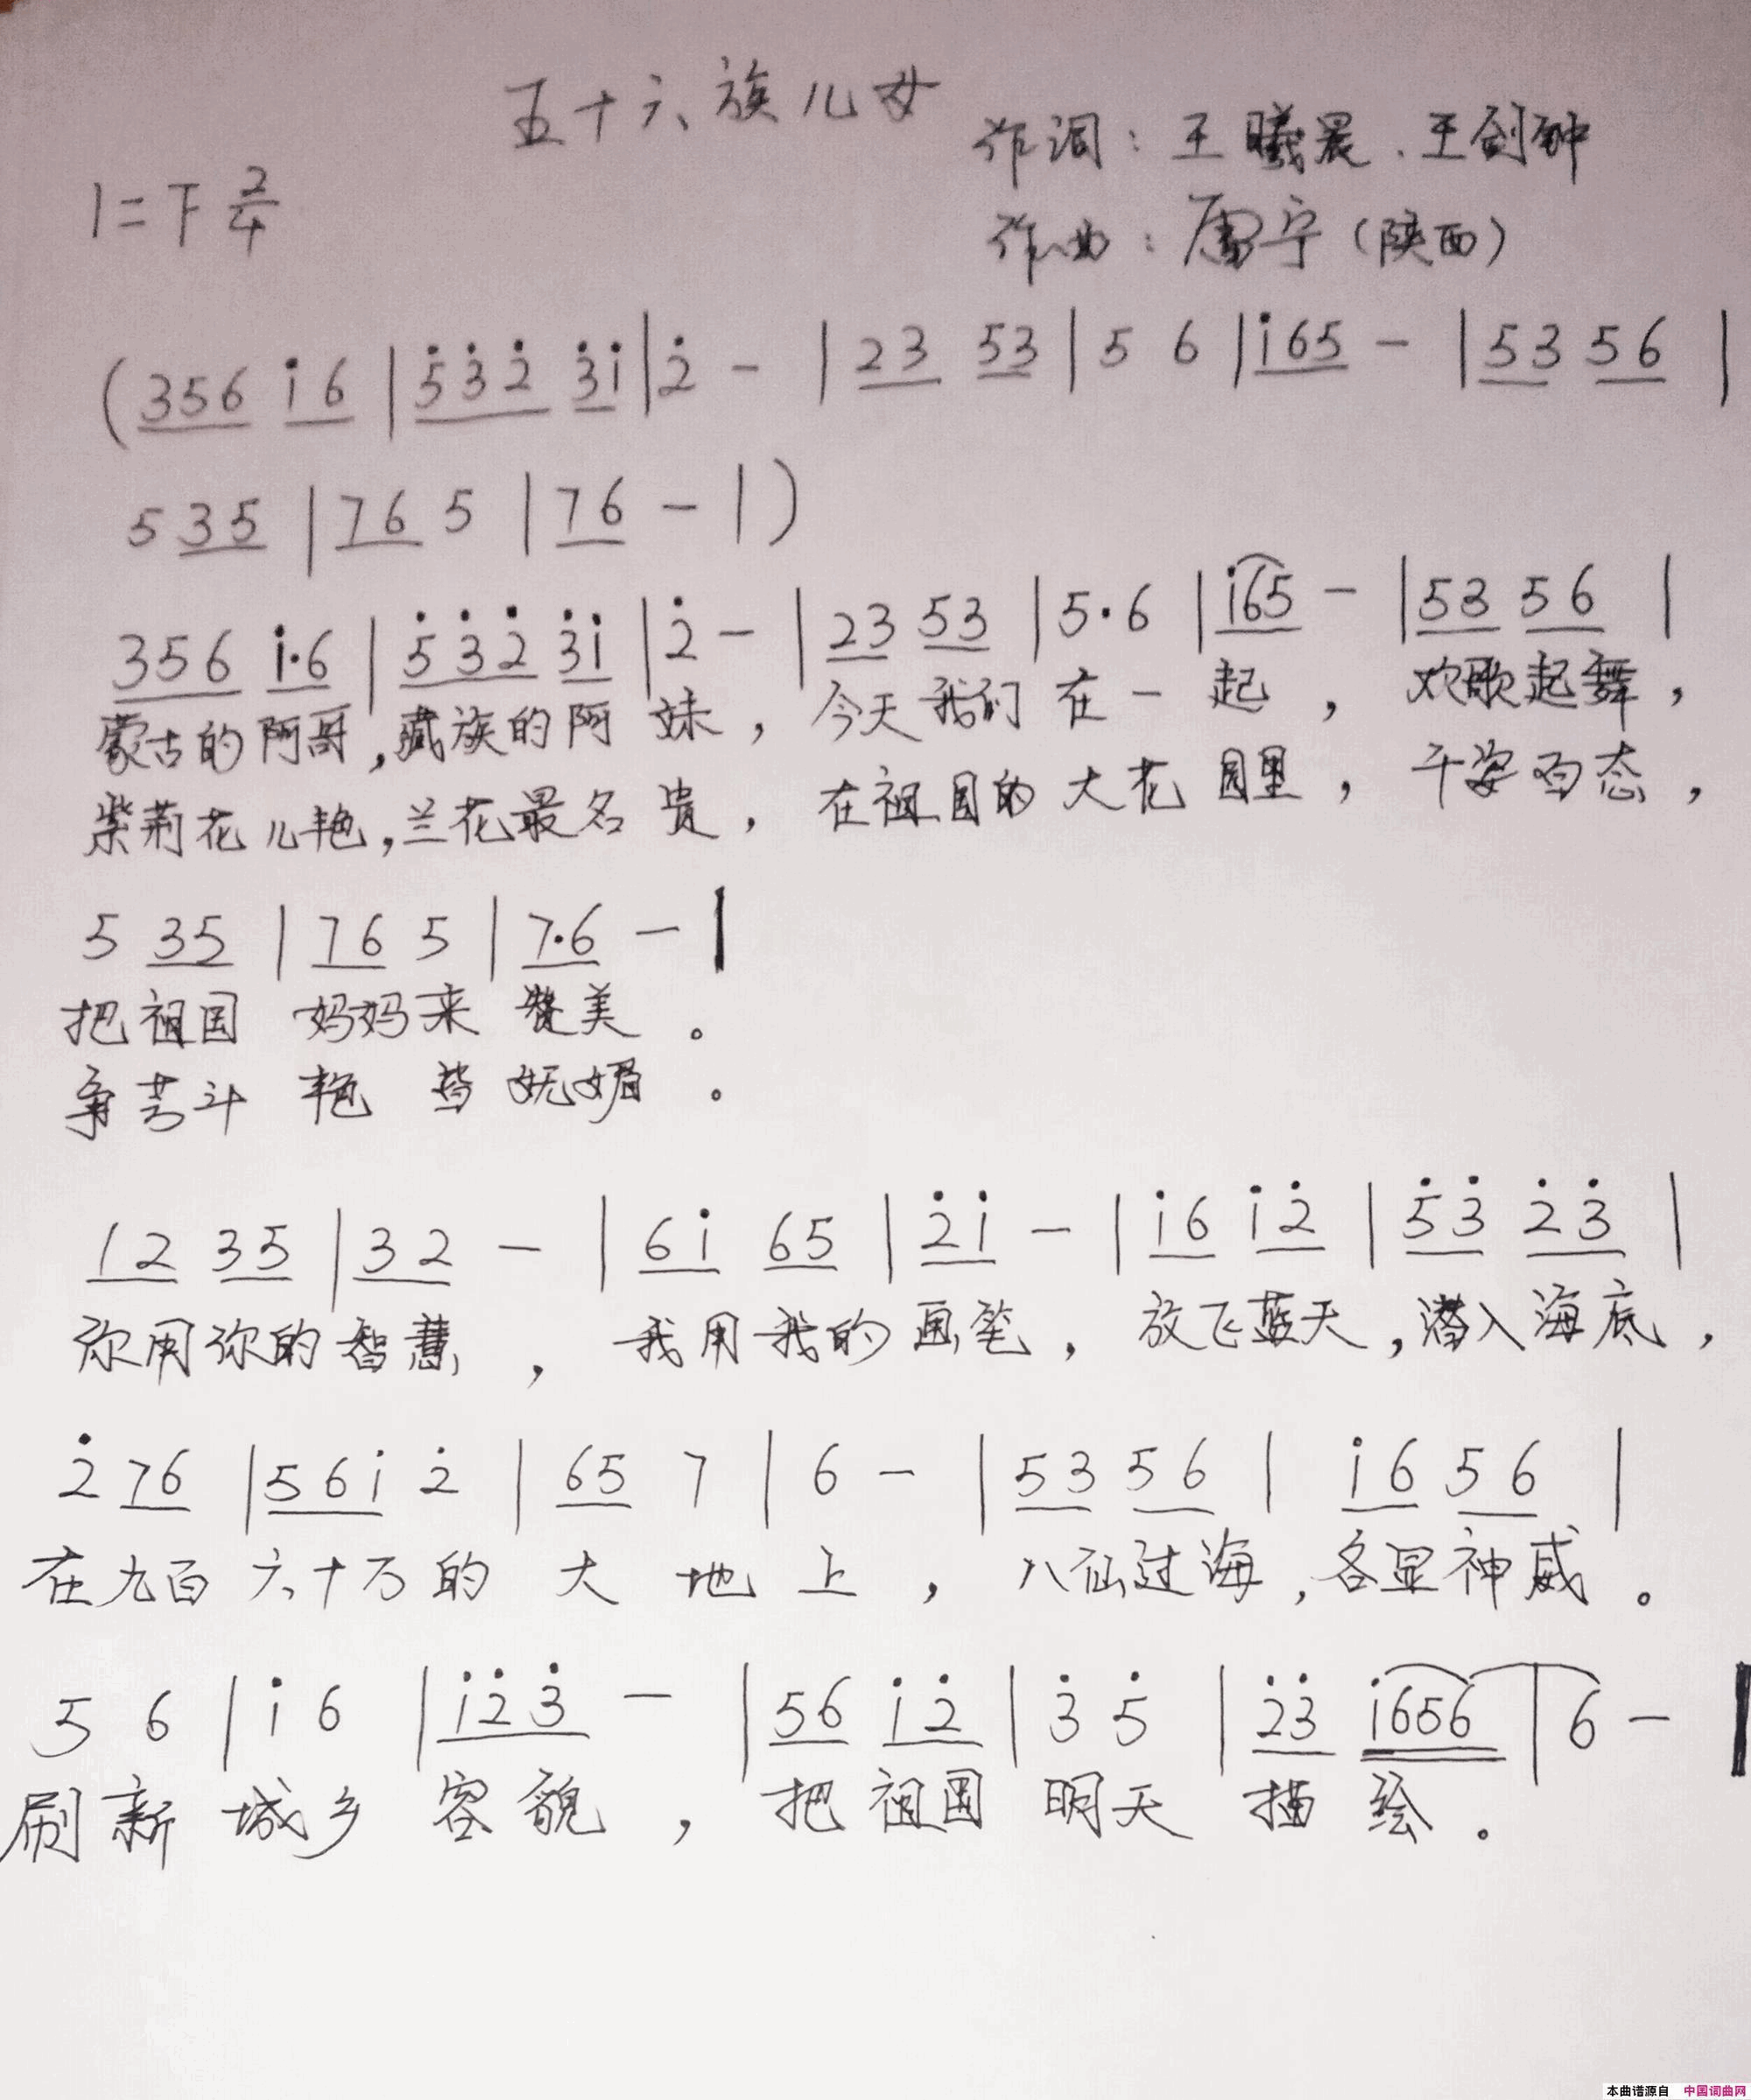 五十六族儿女
作词：王曦晨、王剑钟
1=F 2/4
作曲：唐宁（陕西）
(356 i6 | 5̇3̇2̇ 3̇i | 2̇ - | 23 53 | 5 6 | i65 - | 53 56 |
5 35 | 76 5 | 76 - | )
356 i·6 | 5̇3̇2̇ 3̇i | 2̇ - | 23 53 | 5·6 | i65 - | 53 56 |
蒙古的阿哥，藏族的阿妹，今天我们在一起，欢歌起舞，
紫荆花儿艳，兰花最名贵，在祖国的大花园里，千姿百态，
5 35 | 76 5 | 7·6 - |
把祖国 妈妈来 赞美。
争芳斗 艳 皆 妩媚。
12 35 | 32 - | 6i 65 | 2̇i - | i6 i2̇ | 5̇3̇ 2̇3̇ |
你用你的智慧，我用我的画笔，放飞蓝天，潜入海底，
2̇ 76 | 56i 2̇ | 65 7 | 6 - | 53 56 | i6 56 |
在九百六十万的大地上，八仙过海，各显神威。
5 6 | i 6 | i2̇3̇ - | 56 i2̇ | 3̇ 5̇ | 2̇3̇ i656 | 6 - |
刷新城乡容貌，把祖国明天描绘。
本曲谱源自 中国词曲网